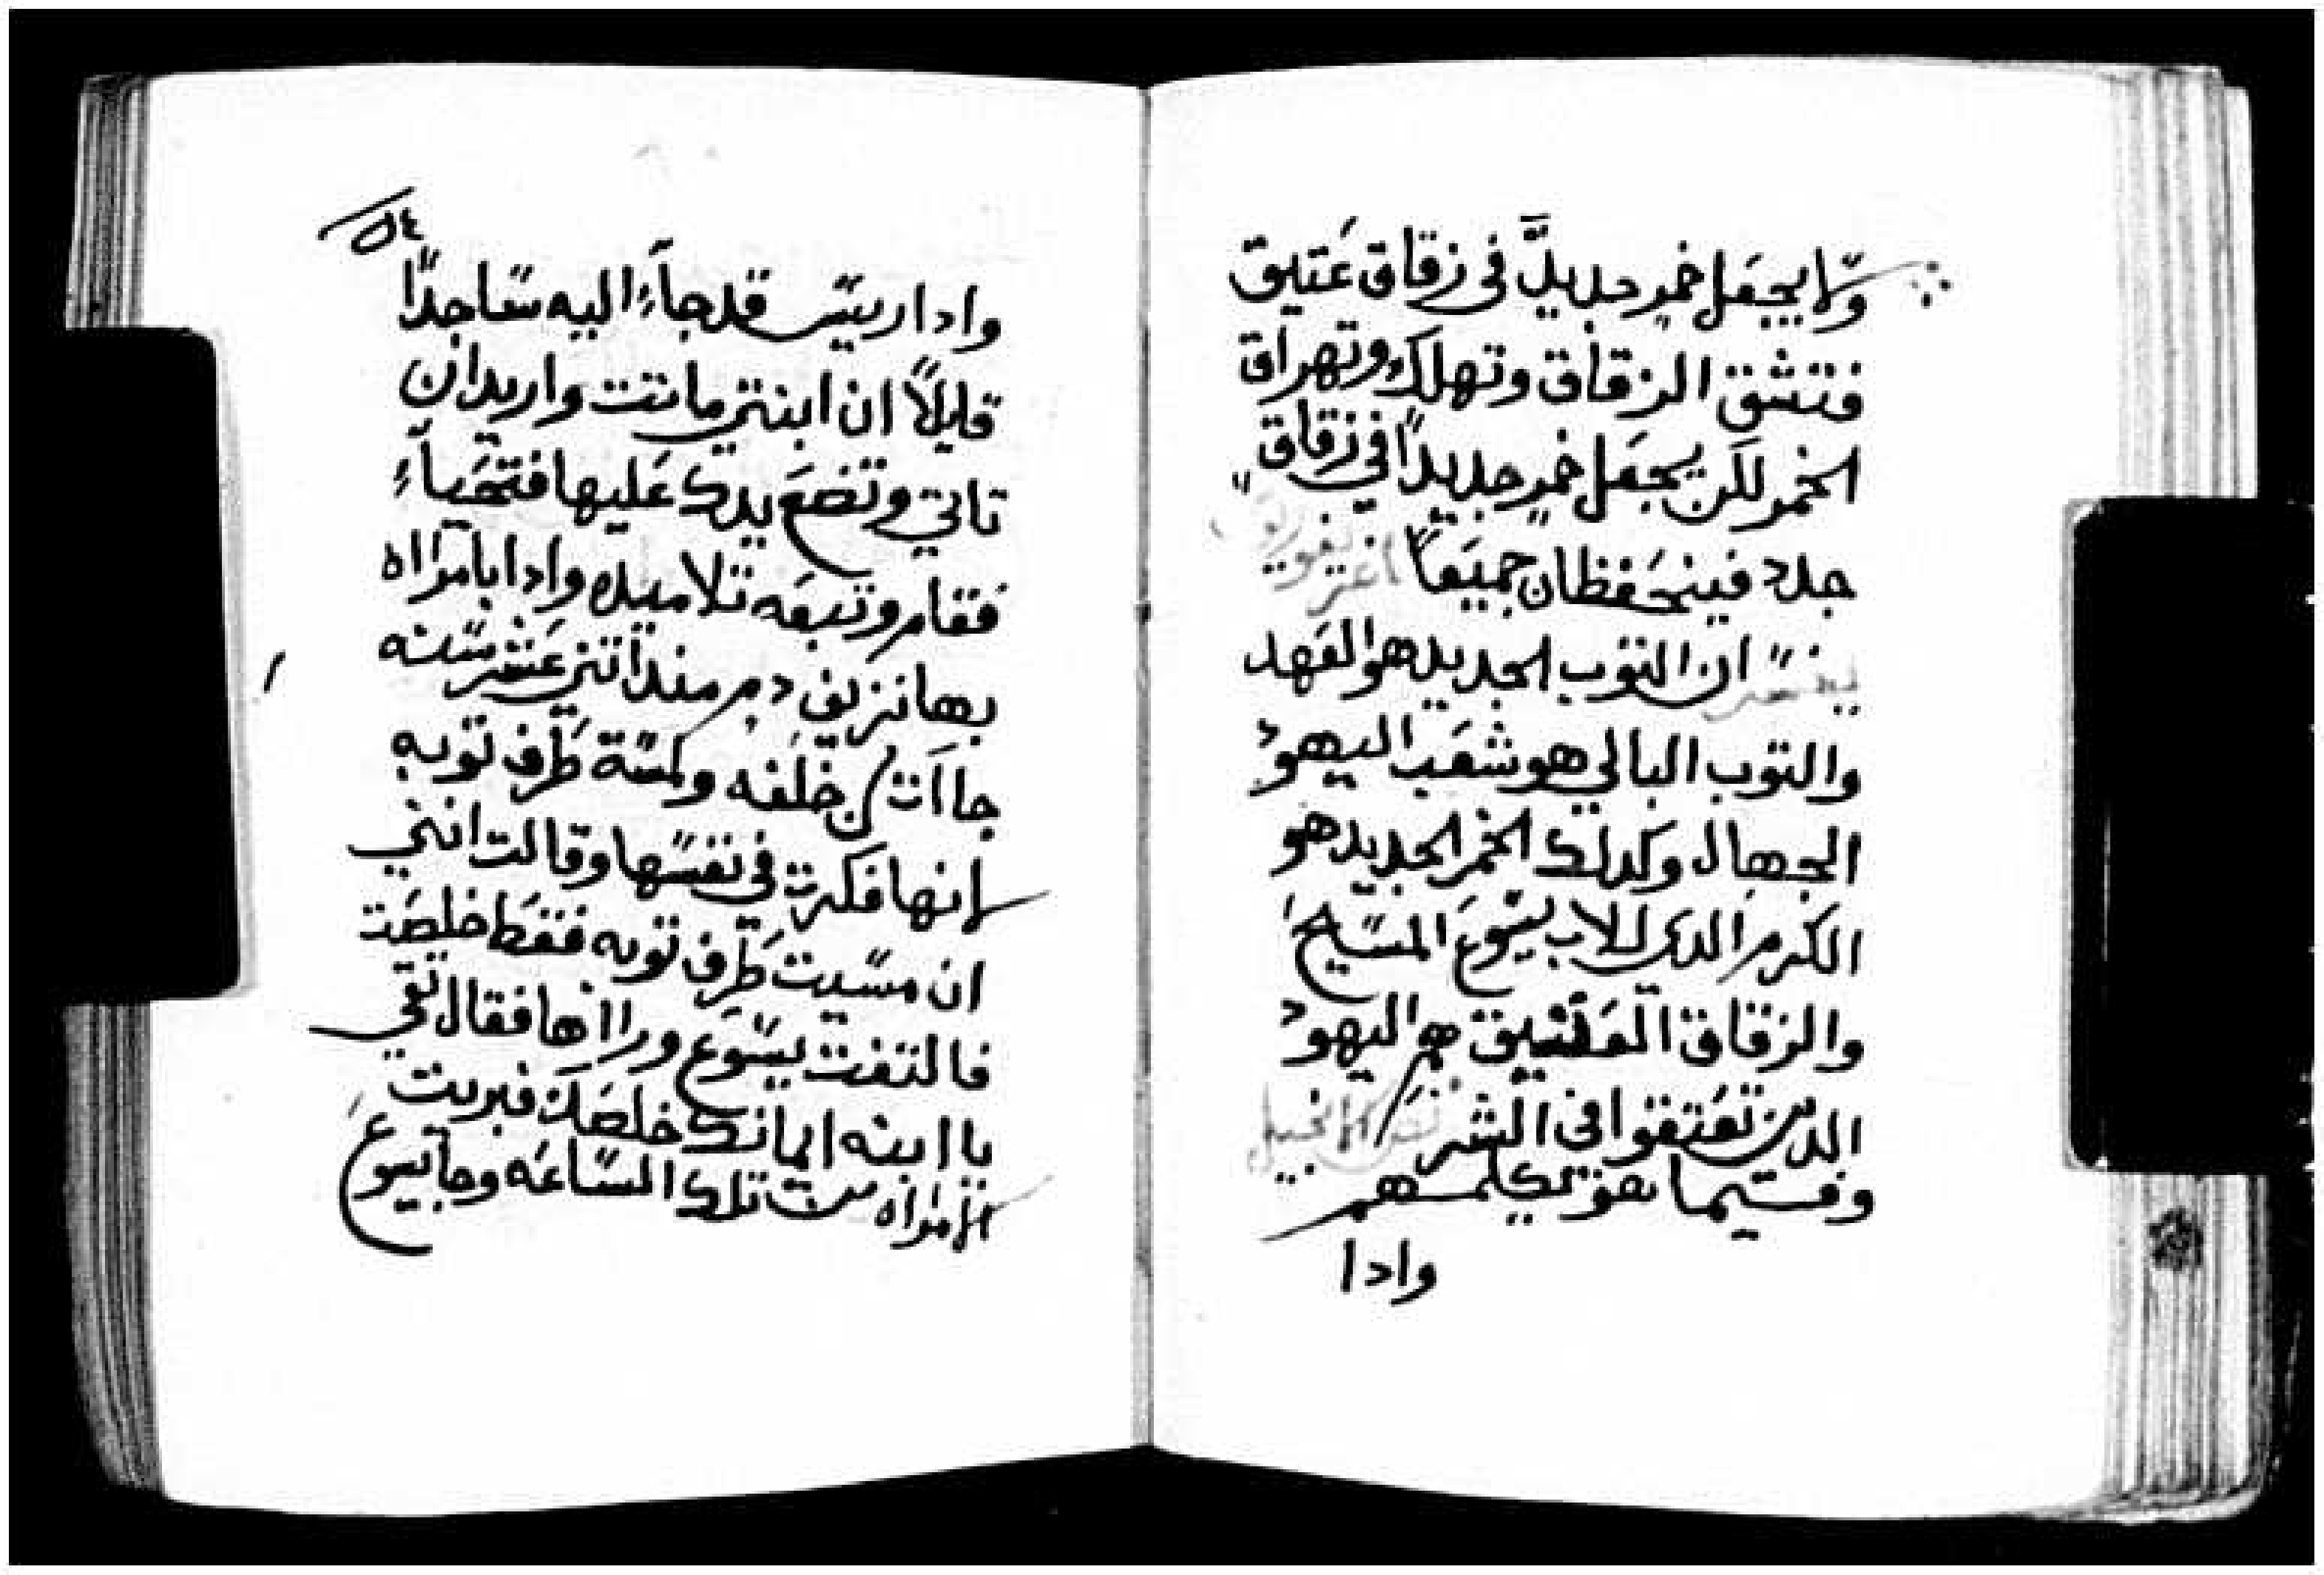 ولا يجعل خمر جديدً في زقاق عتيق
فتشق الزقاق وتهلك وتهراق
الخمر لكن يجعل خمر جديداً في زقاق
جدد فينحفظان جميعاً
يفسر ان التوب الجديد هو العهد
والتوب البالي هو شعب اليهود
الجهال وكدلك الخمر الجديد هو
الكرم الدي للاب يسوع المسيح
والزقاق العتيق هم اليهود
الدين تعتقوا في الشر
وفيما هو يكلمهم
وادا
٥٤
وادا ريس قد جاءَ اليه ساجداً
قايلاً ان ابنتي ماتت واريد ان
تاتي وتضع يدك عليها فتحياءَ
فقام وتبعه تلاميده وادا بامراه
بها نزيف دم مند اتني عشر سنه
جاات من خلفه ولمسة طرف توبه
لانها فكرت في نفسها وقالت انني
ان مسيت طرف توبه فقط خلصت
فالتفت يسوع وراها فقال تقي
يا ابنه ايمانك خلصك فبريت
الامراه من تلك الساعه وجا يسوع